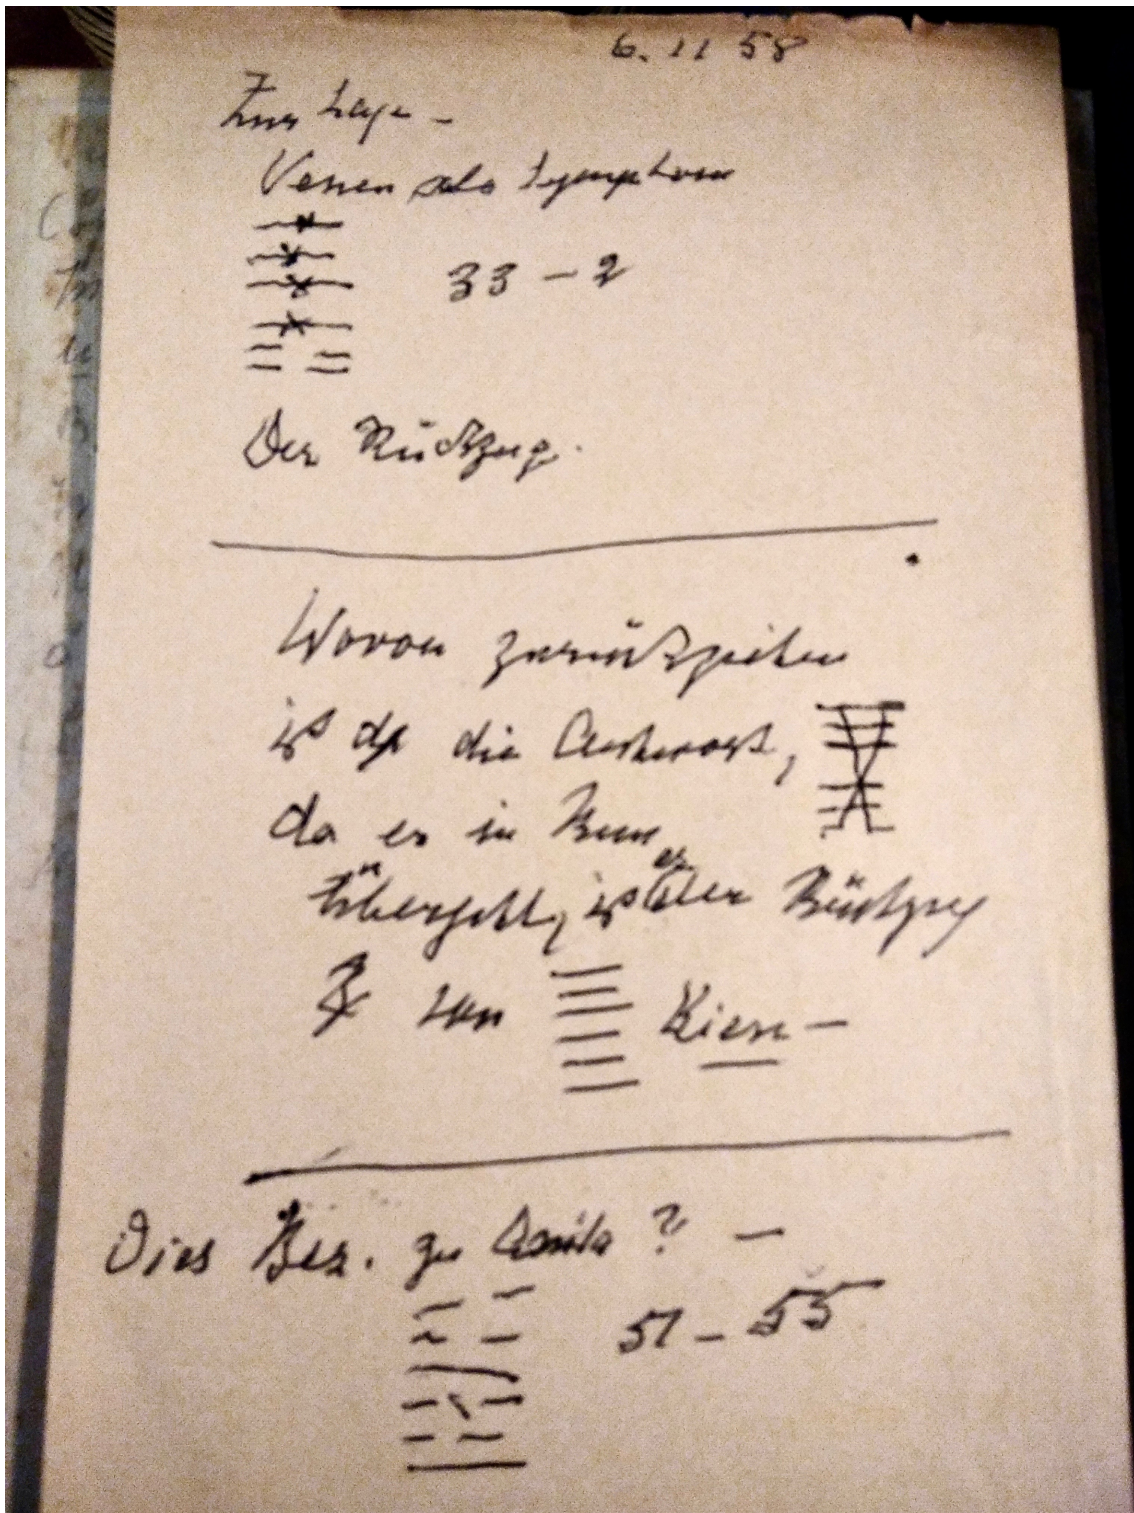 6. 11 58
Zur Lage -
Venen als Symptom
33 - 2
Der Rückzug.
Wovon zurückziehen
ist die Antwort,
da es in Kun
übergeht, ist der Rückzug
von Kien -
Dies Bez. zu ?-
51 - 55